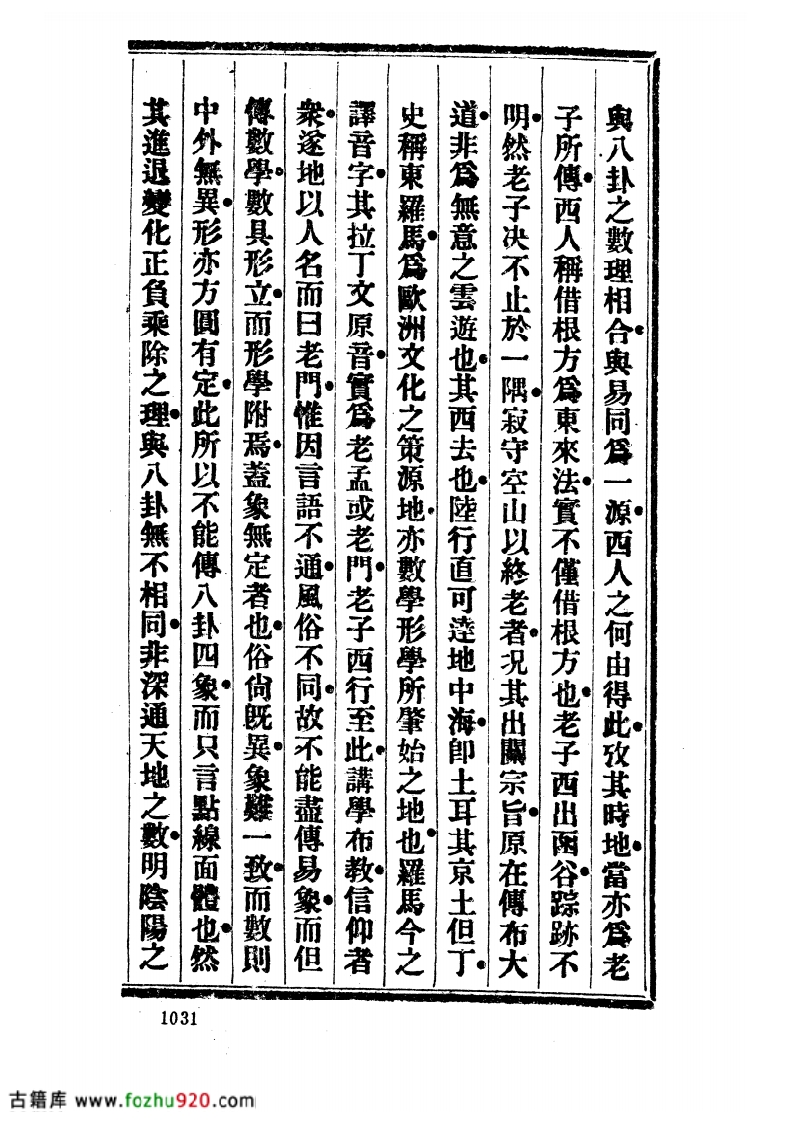 與八卦之數理相合與易同爲一源西人之何由得此攷其時地當亦爲老
子所傳西人稱借根方爲東來法實不僅借根方也老子西出函谷踪跡不
明然老子決不止於一隅寂守空山以終老者况其出關宗旨原在傳布大
道非爲無意之雲遊也其西去也陸行直可達地中海卽土耳其京土但丁
史稱東羅馬爲歐洲文化之策源地亦數學形學所肇始之地也羅馬今之
譯音字其拉丁文原音實爲老孟或老門老子西行至此講學布教信仰者
衆遂地以人名而曰老門惟因言語不通風俗不同故不能盡傳易象而但
傳數學數具形立而形學附焉蓋象無定者也俗尙旣異象難一致而數則
中外無異形亦方圓有定此所以不能傳八卦四象而只言點線面體也然
其進退變化正負乘除之理與八卦無不相同非深通天地之數明陰陽之
1031
古籍库 www.fozhu920.com